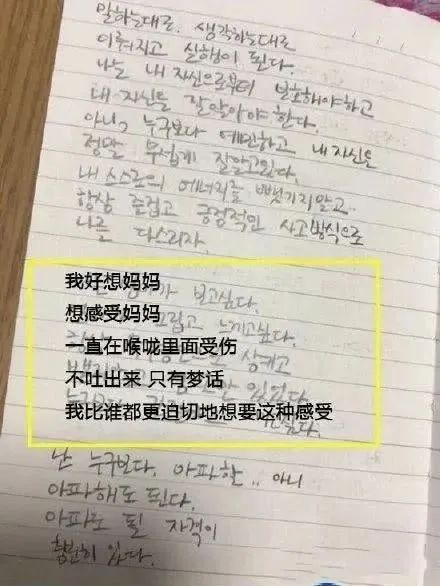 말하는대로. 생각하는대로
이뤄지고 실행이 된다.
나는 내 자신으로부터 보호해야하고
내 자신을 잘알아야 한다.
아니, 누구보다 예민하고 내 자신은
정말 무섭게 잘알고있다.
내 스스로의 에너지를 뺏기지말고..
항상 즐겁고 긍정적인 사고방식으로
나를 다스리자.
我好想妈妈
보고싶다.
想感受妈妈
느끼고싶다.
一直在喉咙里面受伤
不吐出来 只有梦话
我比谁都更迫切地想要这种感受
난 누구보다. 아파할.. 아니
아파해도 된다.
아파도 될 자격이
충분히 있다.